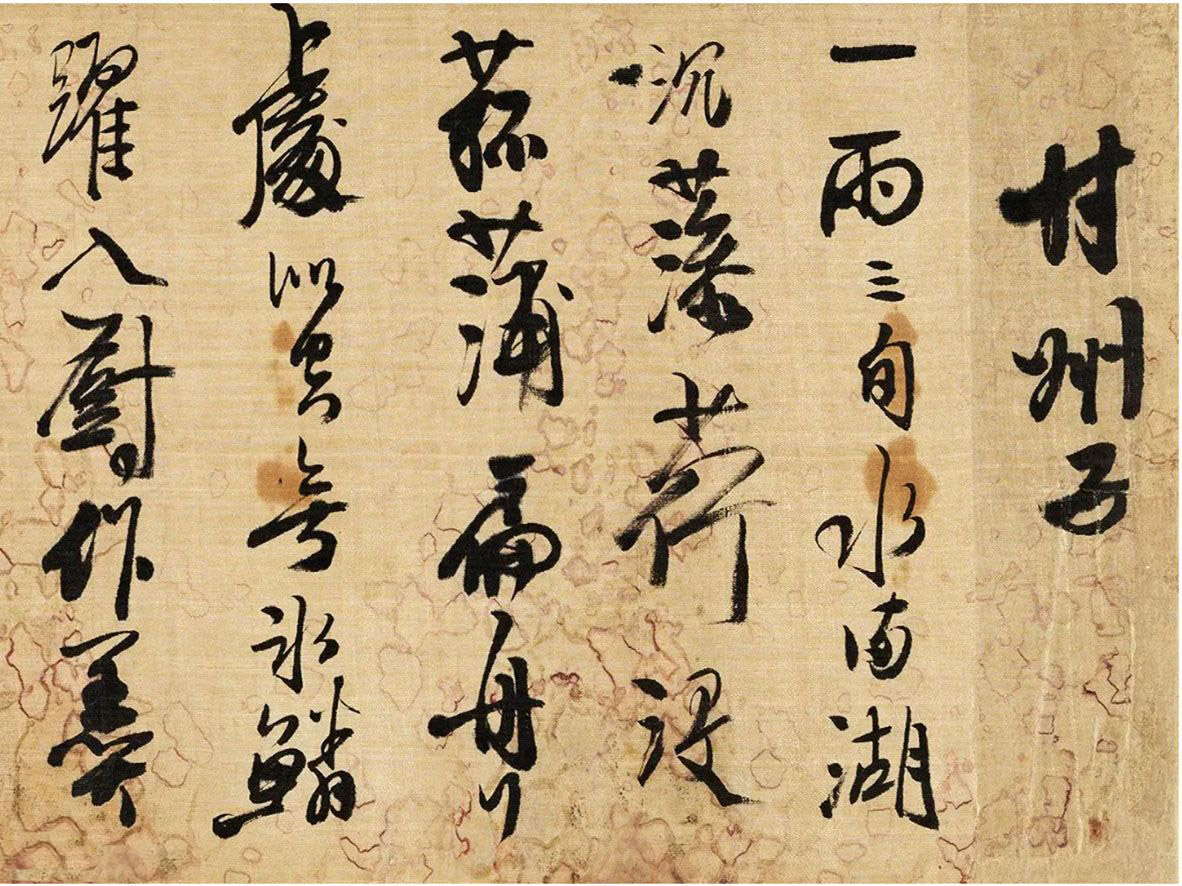 甘州子
一雨三旬水滿湖
沉藻荇没
菰蒲扁舟行
處似空無冰鱗
躍入廚作羹